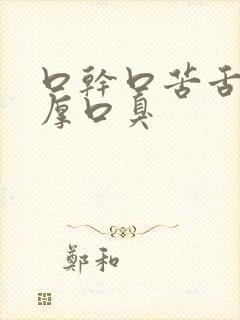 口幹口苦舌
厚口臭
鄭和